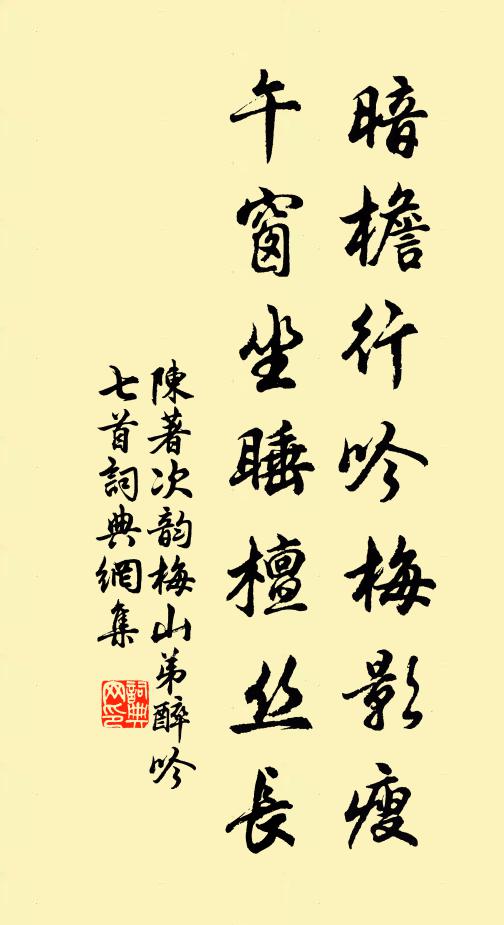 暗檐行吟梅影瘦
午窗坐睡檀丝長
陳著次韵梅山弟醉吟
七首詞典網集
詞典网印